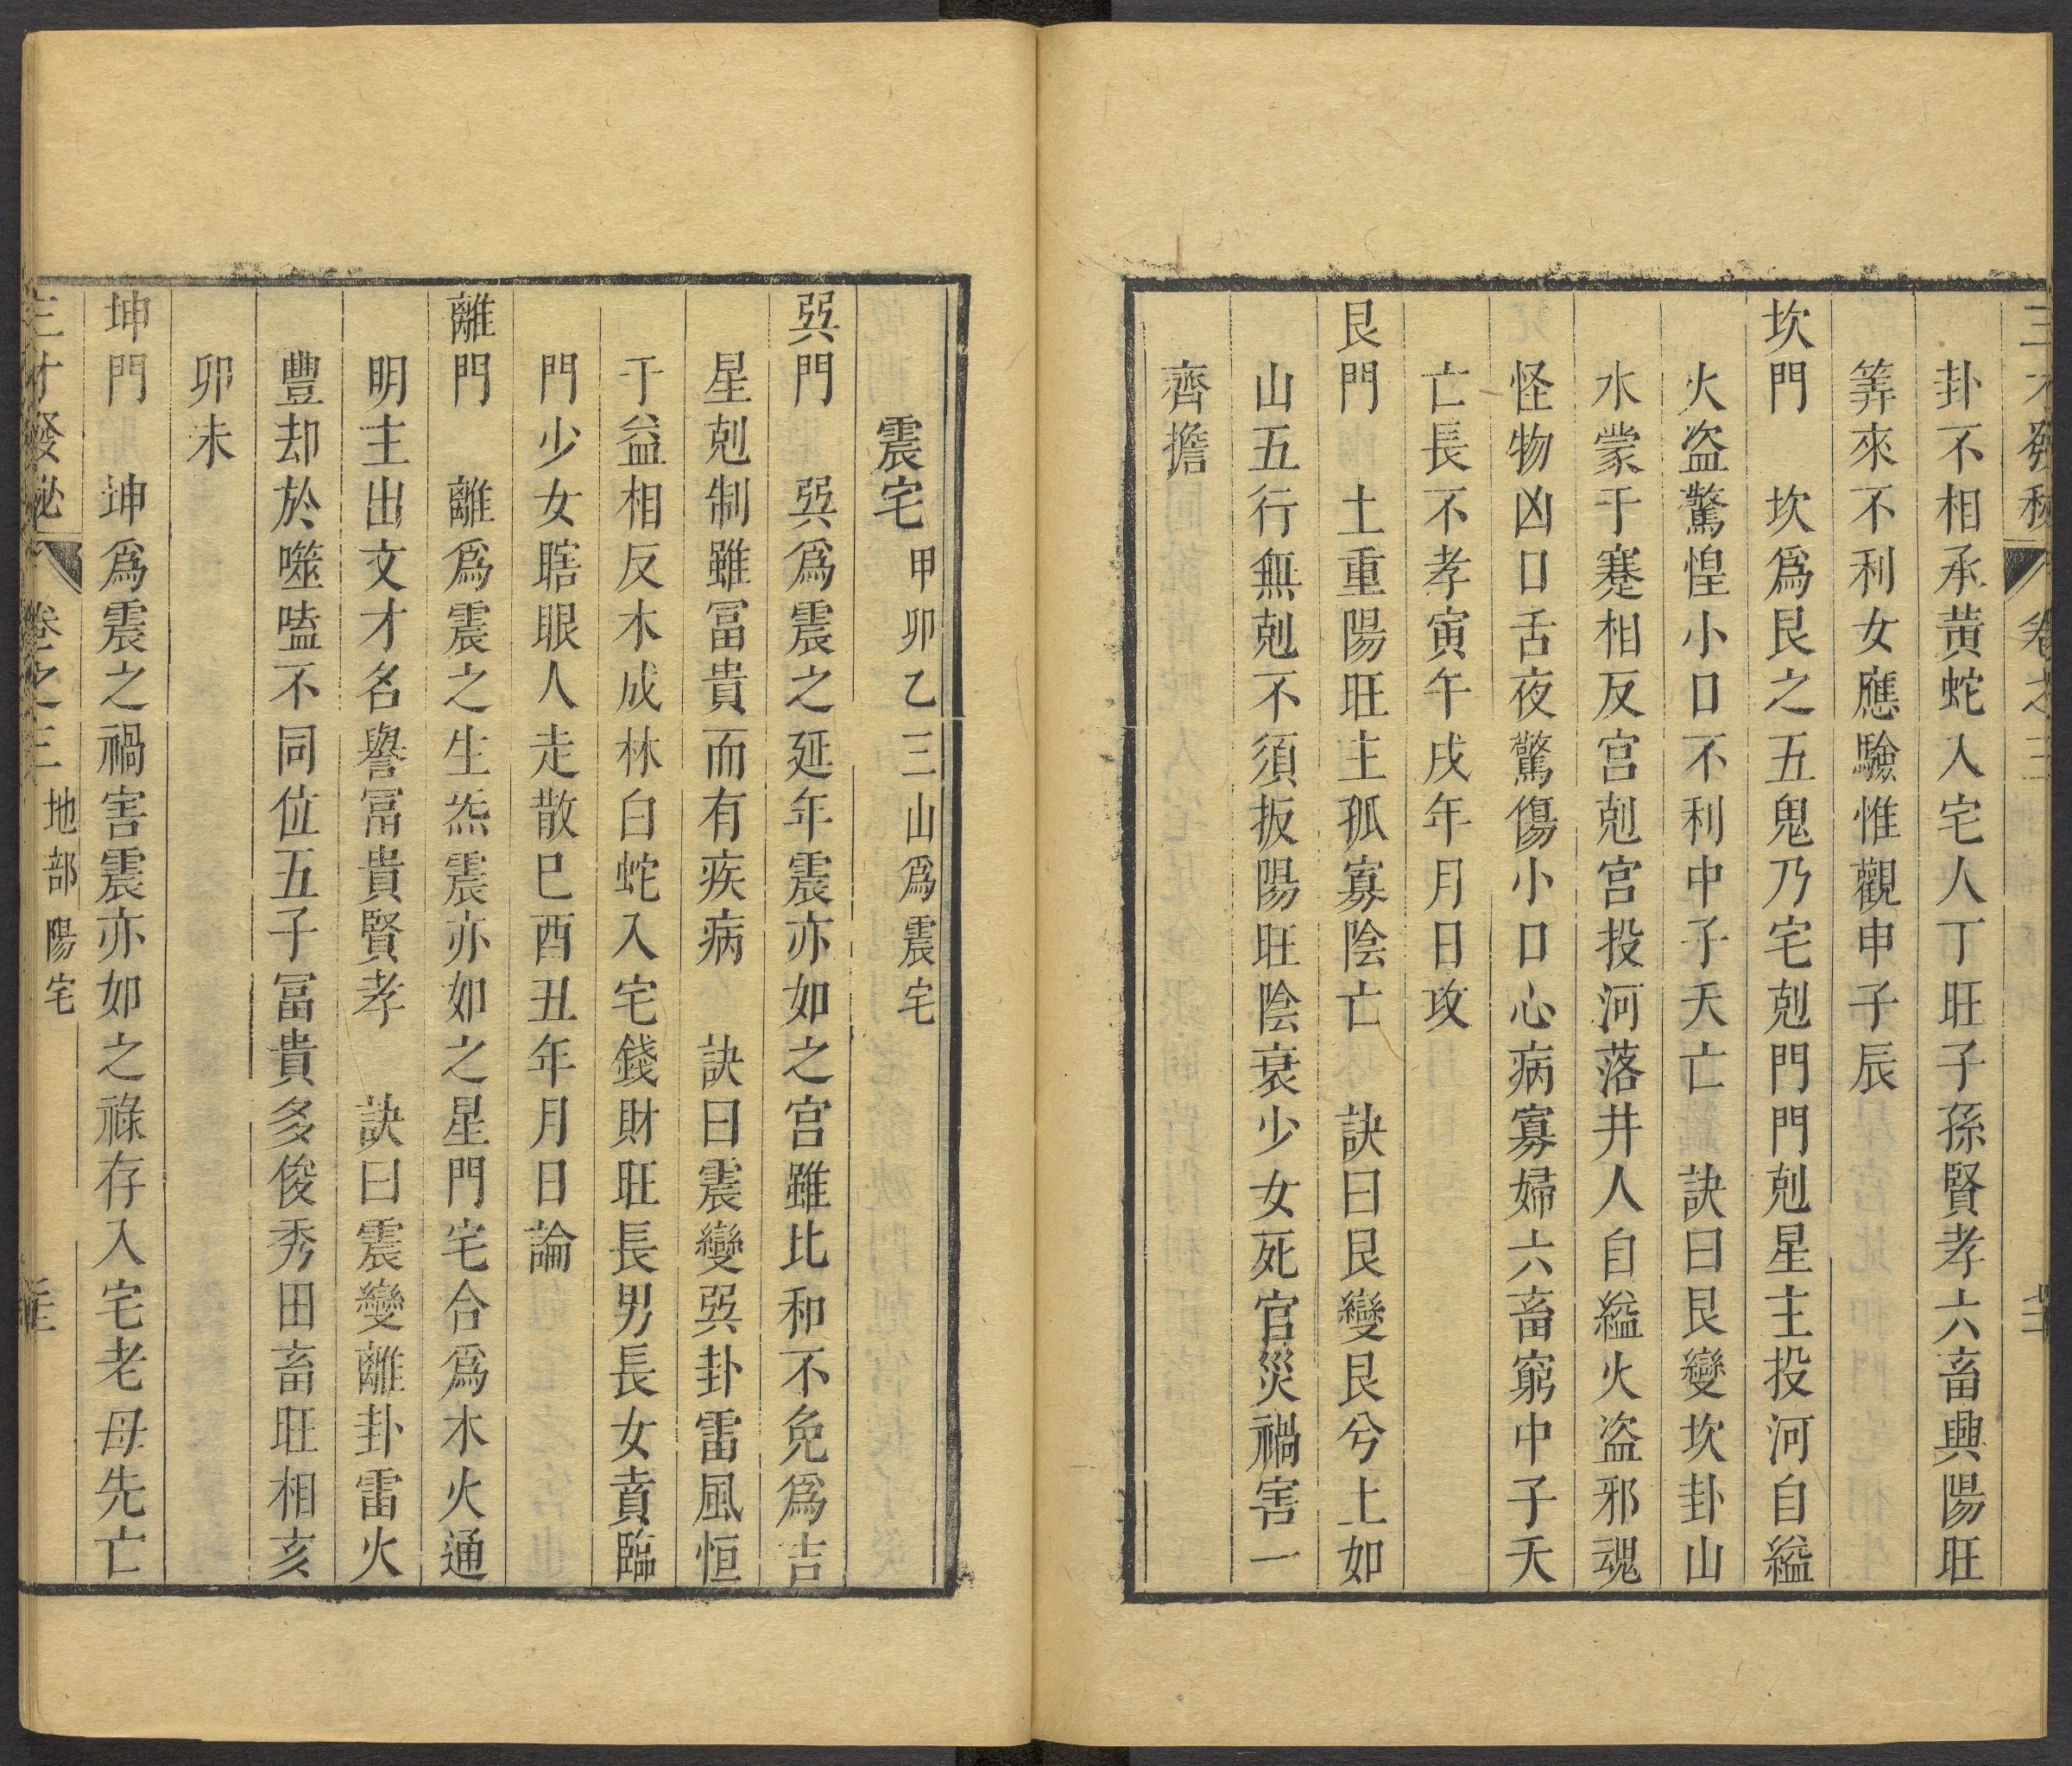 卦不相承黃蛇入宅人丁旺子孫賢孝六畜興陽旺
筭來不利女應驗惟觀申子辰
坎門　坎爲艮之五鬼乃宅剋門門剋星主投河自縊
火盜驚惶小口不利中子夭亡　訣曰艮變坎卦山
水蒙于蹇相反宮剋宮投河落井人自縊火盜邪魂
怪物凶口舌夜驚傷小口心病寡婦六畜窮中子夭
亡長不孝寅午戌年月日攻
艮門　土重陽旺主孤寡陰亡　訣曰艮變艮兮上如
山五行無剋不須扳陽旺陰衰少女死官災禍害一
齊擔
震宅甲卯乙三山爲震宅
巽門　巽爲震之延年震亦如之宮雖比和不免爲吉
星剋制雖冨貴而有疾病　訣曰震變巽卦雷風恒
于益相反木成林白蛇入宅錢財旺長男長女賁臨
門少女瞎眼人走散巳酉丑年月日論
離門　離爲震之生炁震亦如之星門宅合爲木火通
明主出文才名譽冨貴賢孝　訣曰震變離卦雷火
豐却於噬嗑不同位五子冨貴多俊秀田畜旺相亥
卯未
坤門　坤爲震之禍害震亦如之祿存入宅老母先亡
三才發秘　卷之三　地部陽宅